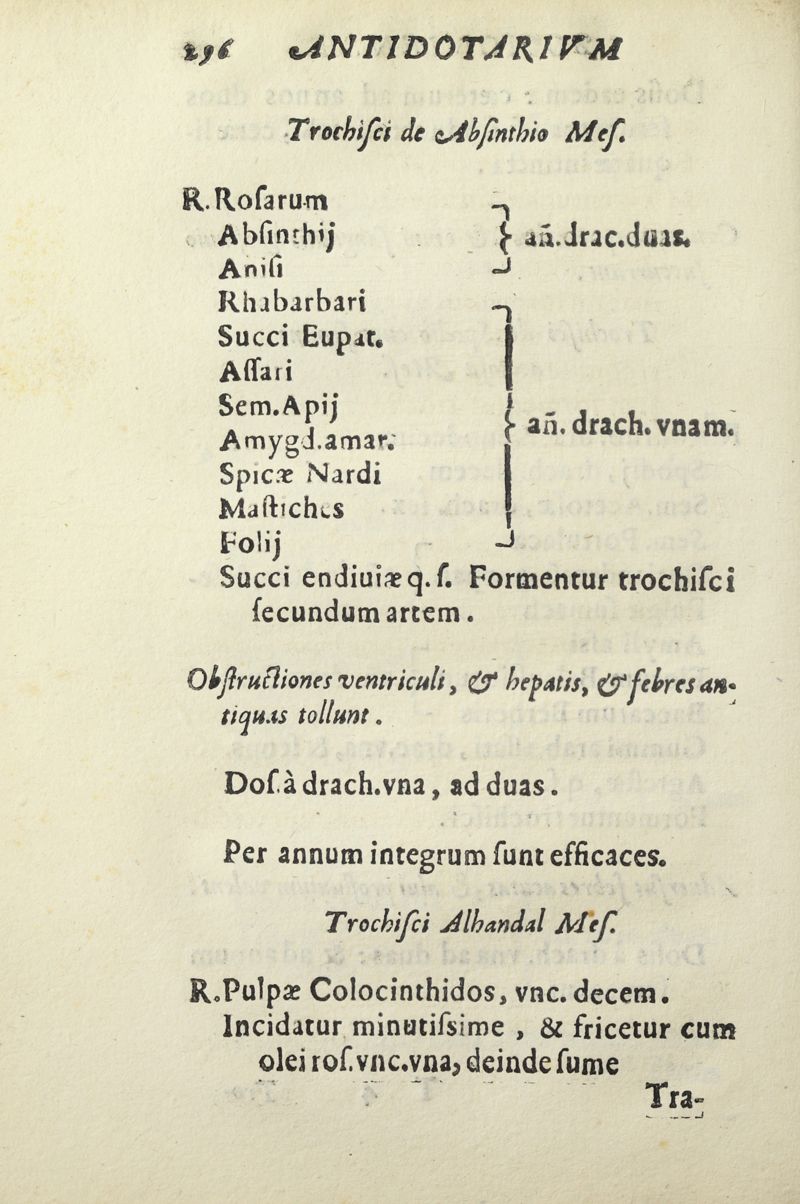 296 ANTIDOTARIVM
Trochiſci de Abſinthio Meſ.
R. Roſarum
Abſinthij
añ.drac.duas.
Aniſi
Rhabarbari
Succi Eupat.
Aſſari
Sem.Apij
añ. drach. vnam.
Amygd.amar.
Spicæ Nardi
Maſtiches
Folij
Succi endiuiæ q. ſ. Formentur trochiſci
ſecundum artem .
Obſtructiones ventriculi, & hepatis, & febres an-
tiquas tollunt .
Doſ. à drach.vna , ad duas .
Per annum integrum ſunt efficaces.
Trochiſci Alhandal Meſ.
R. Pulpæ Colocinthidos, vnc. decem.
Incidatur minutiſsime , & fricetur cum
olei roſ. vnc.vna, deinde ſume
Tra-